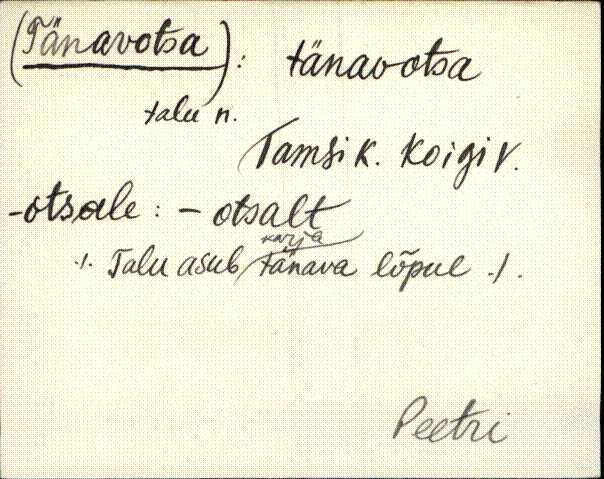 (Tänavotsa): tänavotsa
talu n.
Tamsi k. Koigi v.
-otsale: - otsalt
karja
./. Talu asub tänava lõpul ./.
Peetri